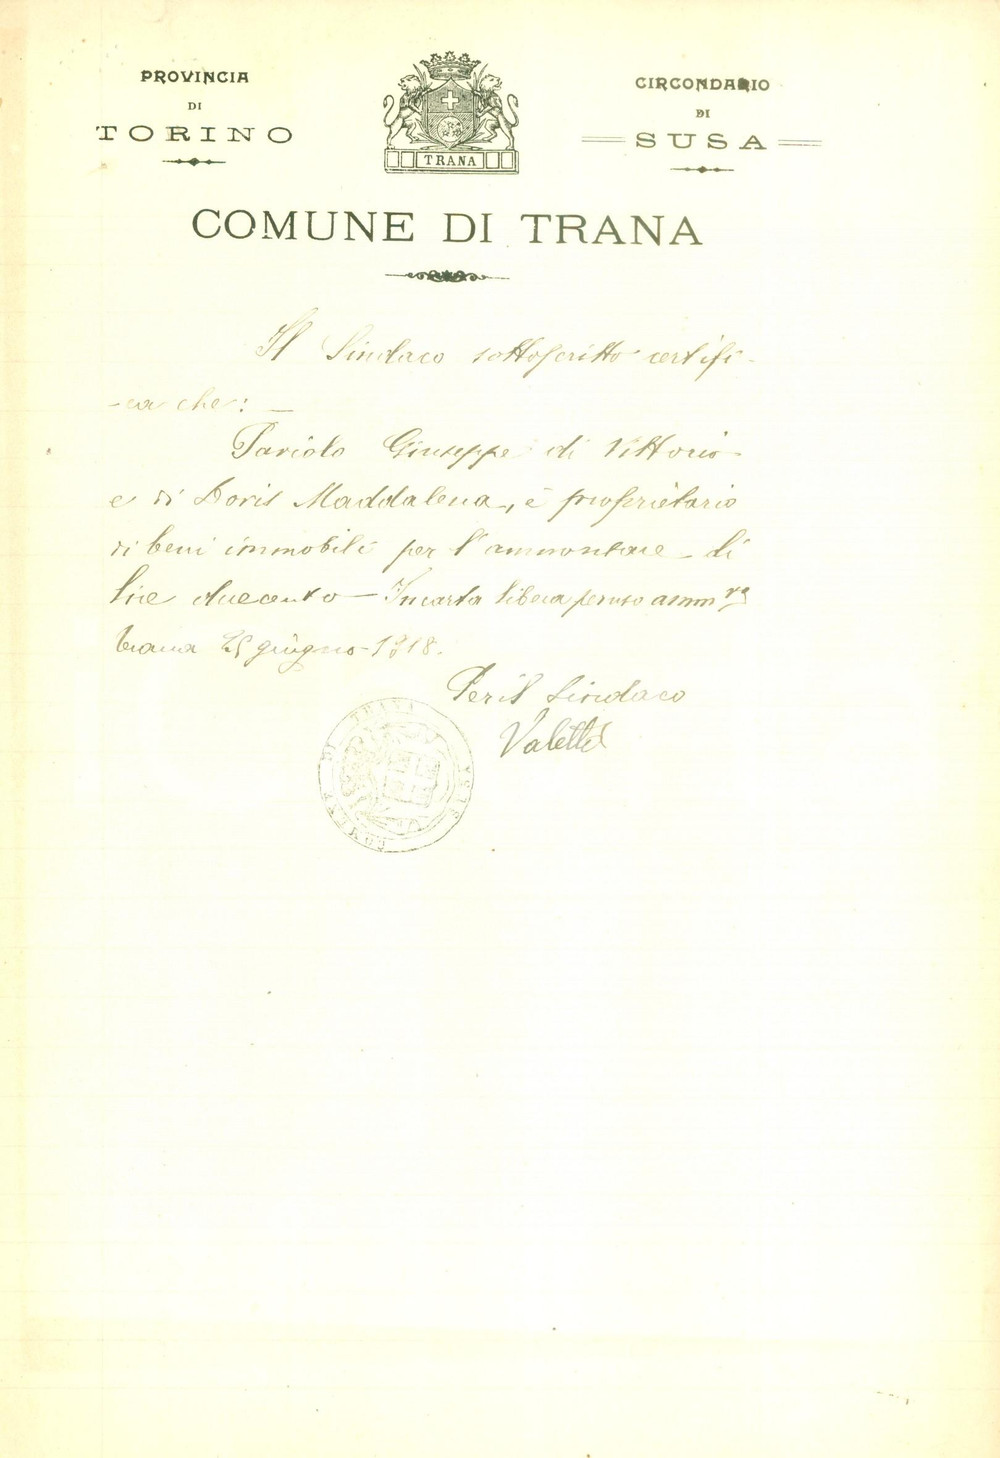 PROVINCIA
DI
TORINO
TRANA
CIRCONDARIO
DI
SUSA
COMUNE DI TRANA
Il Sindaco sottoscritto certifi-
-ca che: —
Giuseppe di Vittorio
e di Doris Maddalena, è proprietario
di beni immobili per l'ammontare di
lire duecento — In carta libera per uso amm.va
Trana 25 giugno 1918.
Per il Sindaco
Valetti
COMUNE DI TRANA SUSA